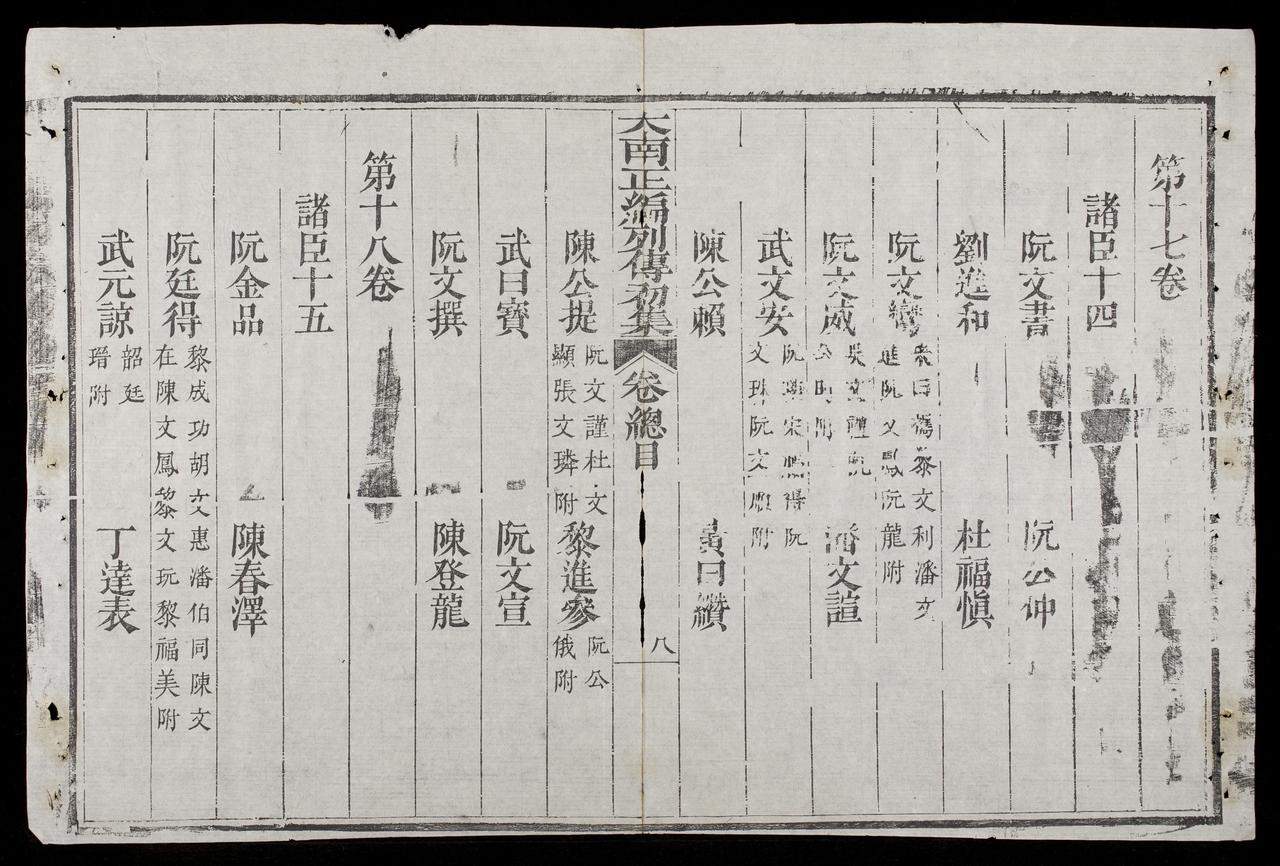 第十七卷
諸臣十四
阮文書 阮公仲
劉進和 杜福慎
阮文 黎文利潘文
進阮文鳳阮龍附
阮文威 潘文誼
武文安 得阮
文珠阮文順附
陳公賴 黃曰纘
大南正編列傳初集 卷總目 八
陳公提 阮文謹杜文
顯張文璘附 黎進參 阮公
俄附
武曰寶 阮文宣
阮文撰 陳登龍
第十八卷
諸臣十五
阮金品 陳春澤
阮廷得 黎成功胡文惠潘伯同陳文
在陳文鳳黎文玩黎福美附
武元諒 韶廷
瑨附 丁達表